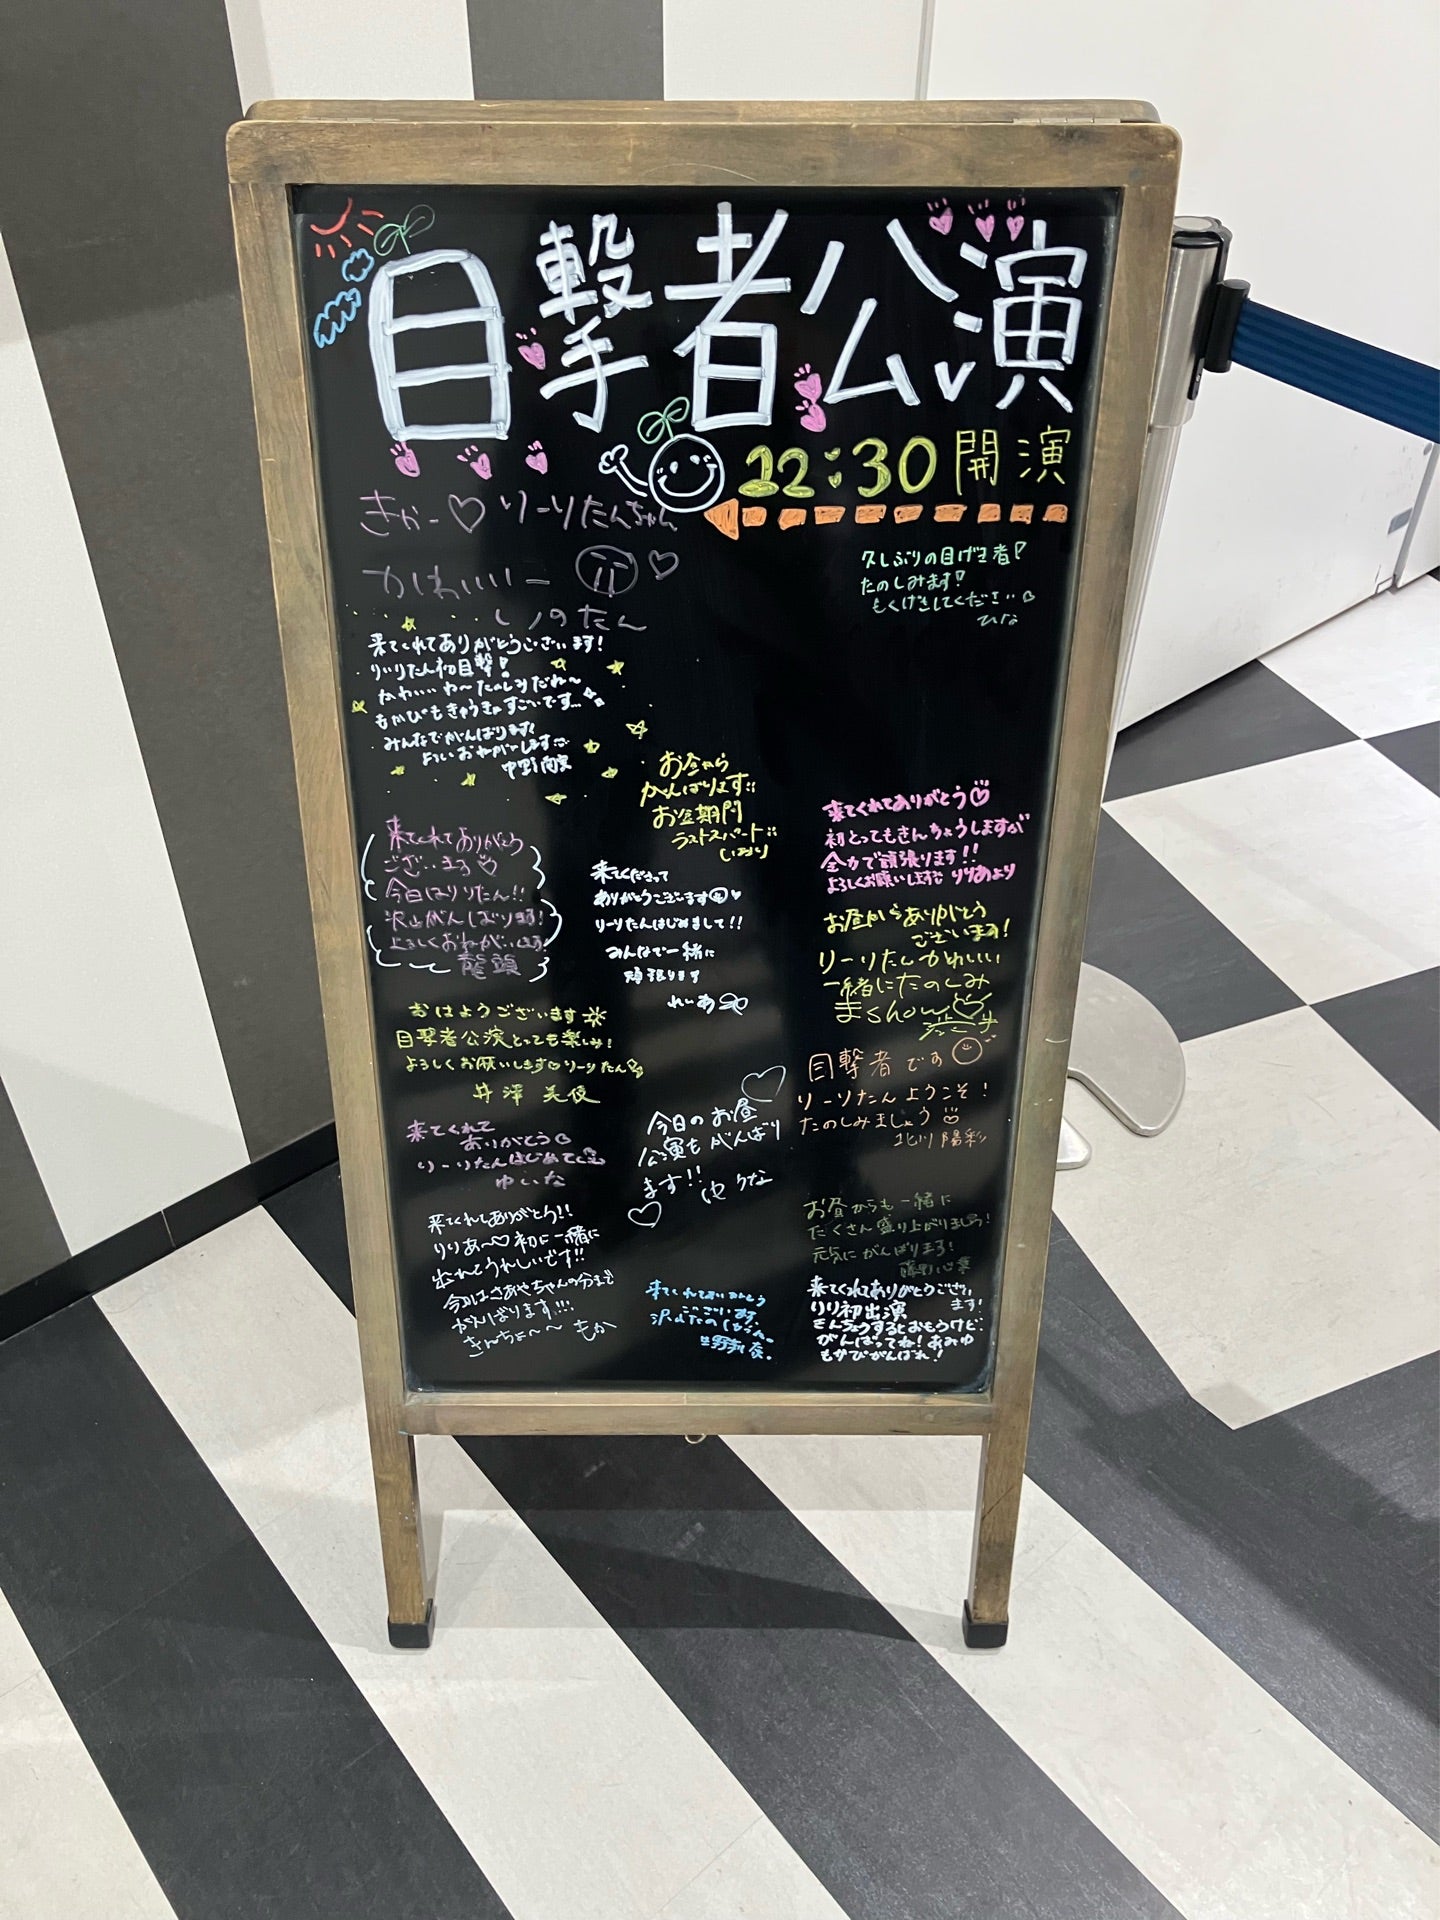 目撃者公演
22:30開演
きゃー♡りーりたんちゃん
かわいいー
しのたん
久しぶりの目げき者!
たのしみます!
もくげきしてください♡
ひな
来てくれてありがとうございます!
りーりたん初目撃!
かわいい わ〜たのしみだね〜
もかぴもきゅうきょすごいです...
みんなでがんばります!
よろしくおねがいします
お昼から
がんばります!!
お盆期間
ラストスパート!!
しおり
来てくれてありがとう♡
初とってもきんちょうしますが
全力で頑張ります!!
よろしくお願いします りりあより
来てくれてありがとう
ございます♡
今日はりりたん!!
沢山がんばります!
よろしくおねがいします!
龍頭
来てくださって
ありがとうございます
りーりたんはじめまして!!
みんなで一緒に
頑張ります
れいあ
お昼からありがとう
ございます!
りーりたんかわいい
一緒にたのしみ
まshow♡
おはようございます
目撃者公演とっても楽しみ!
よろしくお願いします♡りーりたん
井澤 美優
目撃者です
りーりたんようこそ!
たのしみましょう
北川 陽彩
来てくれて
ありがとう
りーりたんはじめて
ゆいな
今日のお昼
公演もがんばり
ます!! ゆうな
お昼からも一緒に
たくさん盛り上がりましょう!
元気にがんばります!
藤野心葉
来てくれてありがとう!!
りりあ〜♡初に一緒に
出れてうれしいです!!
今日はさあやちゃんの分まで
がんばります!!!
きんちょ〜〜 もか
来てくれてありがとう
ございます
沢山たのしもうね。
来てくれてありがとうござい
ます!
りり初出演
きんちょうするとおもうけど、
がんばってね! あみゆ
もかぴがんばれ!